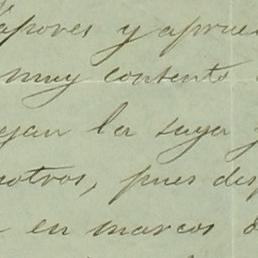 vapores y aprue
muy contento
ejan la suya y
sotros, pues des
en marcos d